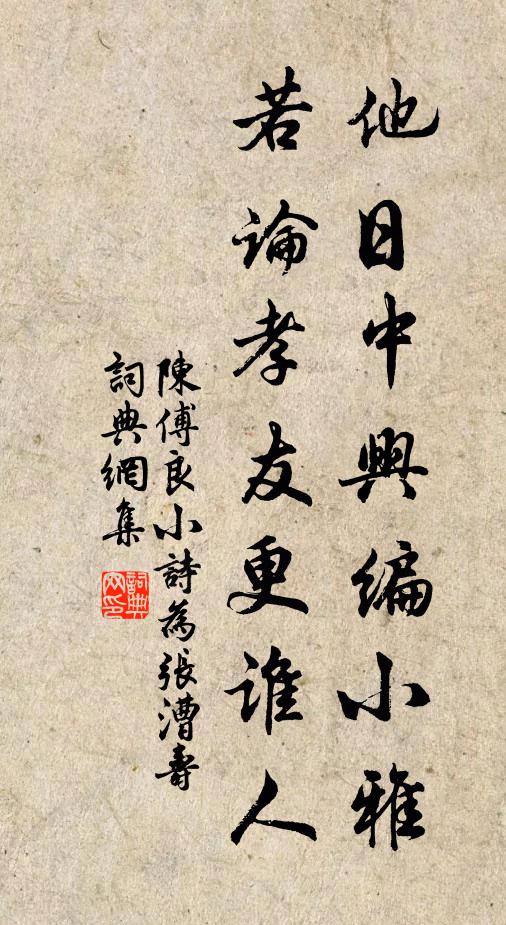 他日中興編小雅
若論孝友更誰人
陳傅良小詩為張漕壽
詞典網集
詞典網印